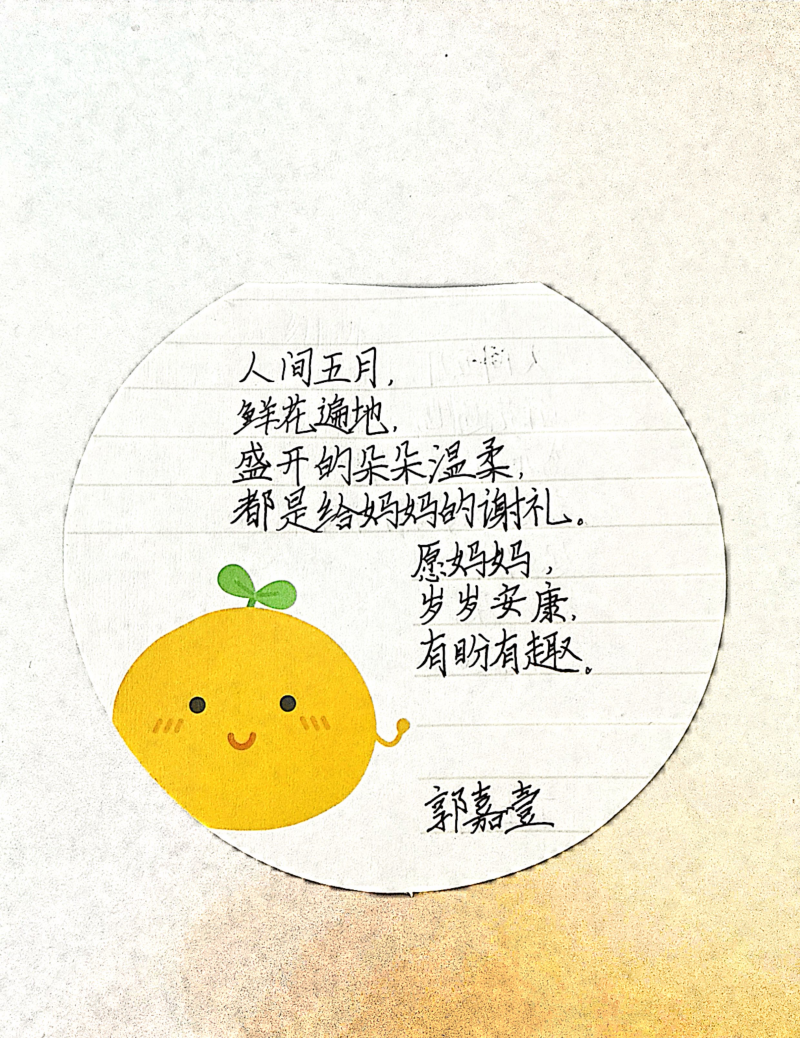 人间五月,
鲜花遍地,
盛开的朵朵温柔,
都是给妈妈的谢礼。
愿妈妈,
岁岁安康,
有盼有趣。
郭嘉壹